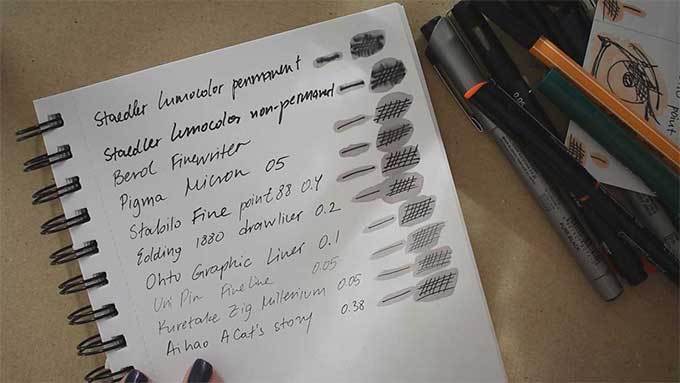 Staedler lumocolor permanent
Staedler lumocolor non-permanent
Berol Finewriter
Pigma Micron 05
Stabilo Fine point 88 0.4
Edding 1880 drawliner 0.2
Ohto Graphic Liner 0.1
Uni Pin Fine Line 0.05
Kuretake Zig Millenium 0.05
Aihao A Cat's story 0.38
0.05
point